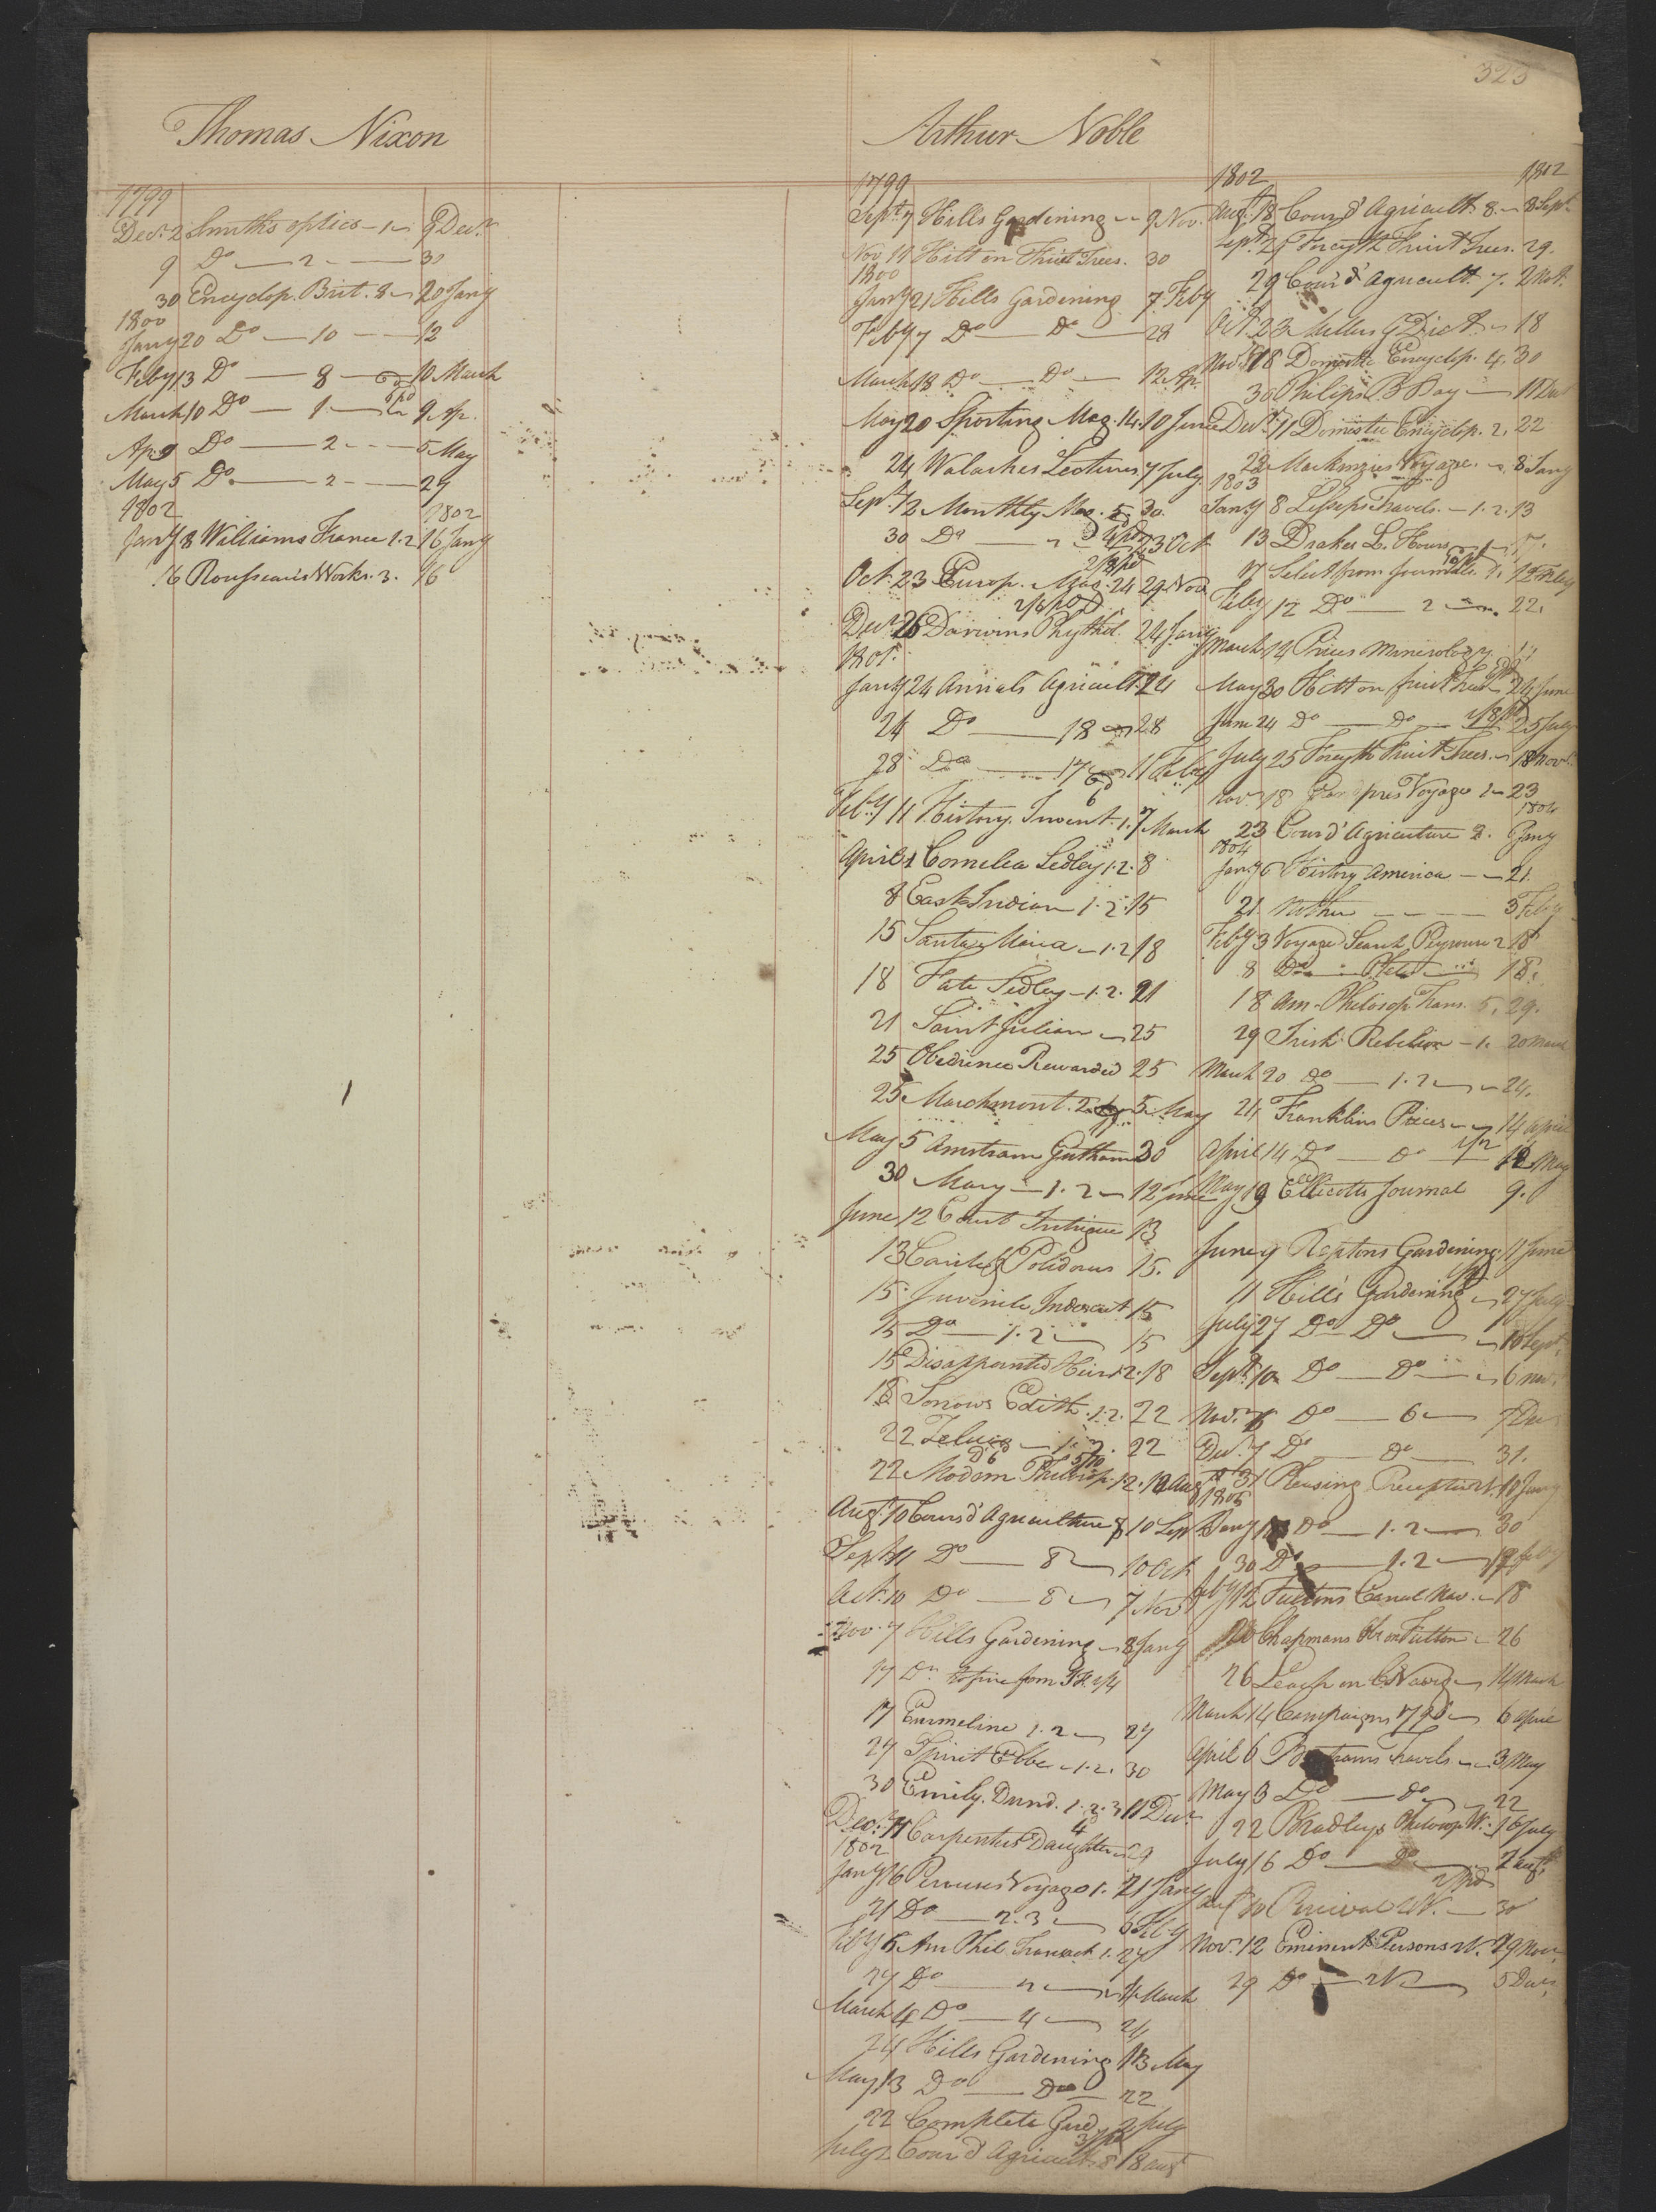 323
Thomas Nixon
1799
Decr 2 Smith's optics - 1 9 Decr
9 Do — 2 — 30
30 Encyclop. Brit. 8 20 Jany
1800
Jany 20 Do — 10 — 12
Feby 13 Do — 8 — 10 March
March 10 Do — 1 — 9 Ap.
Ap 9 Do — 2 — 5 May
May 5 Do — 2 — 29
1802 1802
Jany 8 Williams France 1.2 16 Jany
16 Rousseau's Works. 3. 16
Arthur Noble
1799
Sept 7 Hills Gardening 9 Nov.
Nov 19 Hitt on Fruit Trees. 30
1800
Jany 21 Hills Gardening 7 Feby
Feby 7 Do — Do — 28
March 18 Do — Do — 12 Ap.
May 20 Sporting Mag. 14. 10 June
24 Walackes Lectures 7 July
Sept. 12 Monthly Mag. 5 30.
30 Do — 23 Oct
Oct. 23 Europ. Mag. 24 29 Nov
2/4 pd
Decr 26 Darwins Phythol. 24 Jany
1801.
Jany 24 Annals Agricult. 24
24 Do — 18 28
28 Do — 17 11 Feby
Feby 11 History Invent. 1. 7 March
April 1 Cornelia Sedley 1.2. 8
8 East Indian 1.2. 15
15 Santa Maria - 1.2 18
18 Fate Sedley - 1.2. 21
21 Saint Julian 25
25 Obedience Rewarded 25
25 Marchmont. 2. 5 May
May 5 Amstram Gutham 30
30 Mary - 1.2 - 12 June
June 12 Court Intrigue 13
13 Carite & Polidorus 15.
15. Juvenile Indescret 15
15 Do — 1.2 — 15
15 Disappointed Heir 2. 18
18 Sorrows Edith. 1.2. 22
22 Zeluco - 1.2. 22
22 Modern Philosop. 1.2. 10 Aug
Augt 10 Cours d' Agriculture 8 10 Sept
Sept 11 Do — 8 — 10 Oct
Oct. 10 Do — 8 — 7 Nov
Nov. 7 Hills Gardening 8 Jany
17 Do
17 Emmeline 1.2 27
27 Spirit Elbe - 1.2. 30
30 Emily. Dund. 1.2.3 11 Decr
Decr 11 Carpenters Daughter 29
1802
Jany 16 Perouses Voyage 1. 21 Jany
21 Do — 2.3 — 6 Feby
Feby 6 Am Phil Transact. 1. 27
27 Do — 2 — 4 March
March 4 Do — 4 — 24
24 Hills Gardening 13 May
May 13 Do — Do 22
22 Complete Gard. 2 July
July 2 Cour d' Agricult. 8 18 Aug
1802 1802
Augt 18 Cour d' Agricult 8. 8 Sept
Sept. 29 Forsyth Fruit Trees. 29.
29 Cour d' Agricult 7. 2 Oct.
Oct. 23 Millers G Dict. 18
Novr 18 Domestic Encyclop. 4. 30
30 Philips B Bay — 11 Dec
Decr 11 Domestic Encyclop. 2. 22
22 Mackenzies Voyage. 8 Jany
1803
Jany 8 Lesseps Travels. - 1.2. 13
13 Drakes L. Hours 17.
17 Select from Journals. 1. 12 Feby
Feby 12 Do — 2 — 22.
March 14 Prices Minerology
May 30 Hitt on fruit Trees 24 June
June 24 Do — Do — 1/8 pd 25 July
July 25 Forsyth Fruit Trees. 18 Novr
Nov. 18 Voyage 1 23
1804
23 Cour d' Agriculture 2. 6 Jany
1804
Jany 6 History America 21.
21 3 Feby
Feby 3 Voyage Search Peyrouse 2 18
8 Do — 18.
18 Am. Philosop Trans. 5. 29.
29 Irish Rebelion - 1. 20 March
March 20 Do — 1.2 — 24.
24 Franklins Pieces 14 April
April 14 Do — Do — 1/2 19 May
May 19 Ellicotts Journal 9.
June 9 Reptons Gardening. 11 June
11 Hill's Gardening 27 July
July 27 Do Do 10 Sept.
Sept. 10 Do — Do — 6 nov.
Nov. 6 Do — 6 — 7 Dec
Decr 7 Do — Do — 31.
31 Pleasing Preceptor 1. 10 Jany
1805
Jany 10 Do — 1.2 — 30
30 Do — 1.2 — 12 feby
Feby 12 Fultons Canal Nav. 18
18 Chapmans Ob on Fulton 26
26 Leach on C Navig 14 March
March 14 Campaigns 1796 6 April
April 6 Bartrams Travels 3 May
May 3 Do — Do — 22
22 Bradleys Philosop W. 16 July
July 16 Do — Do — 2 Augt
Augt 10 Percival W. — 30
Novr 12 Eminent Persons W. 29 Nov
29 Do — W 5 Decr